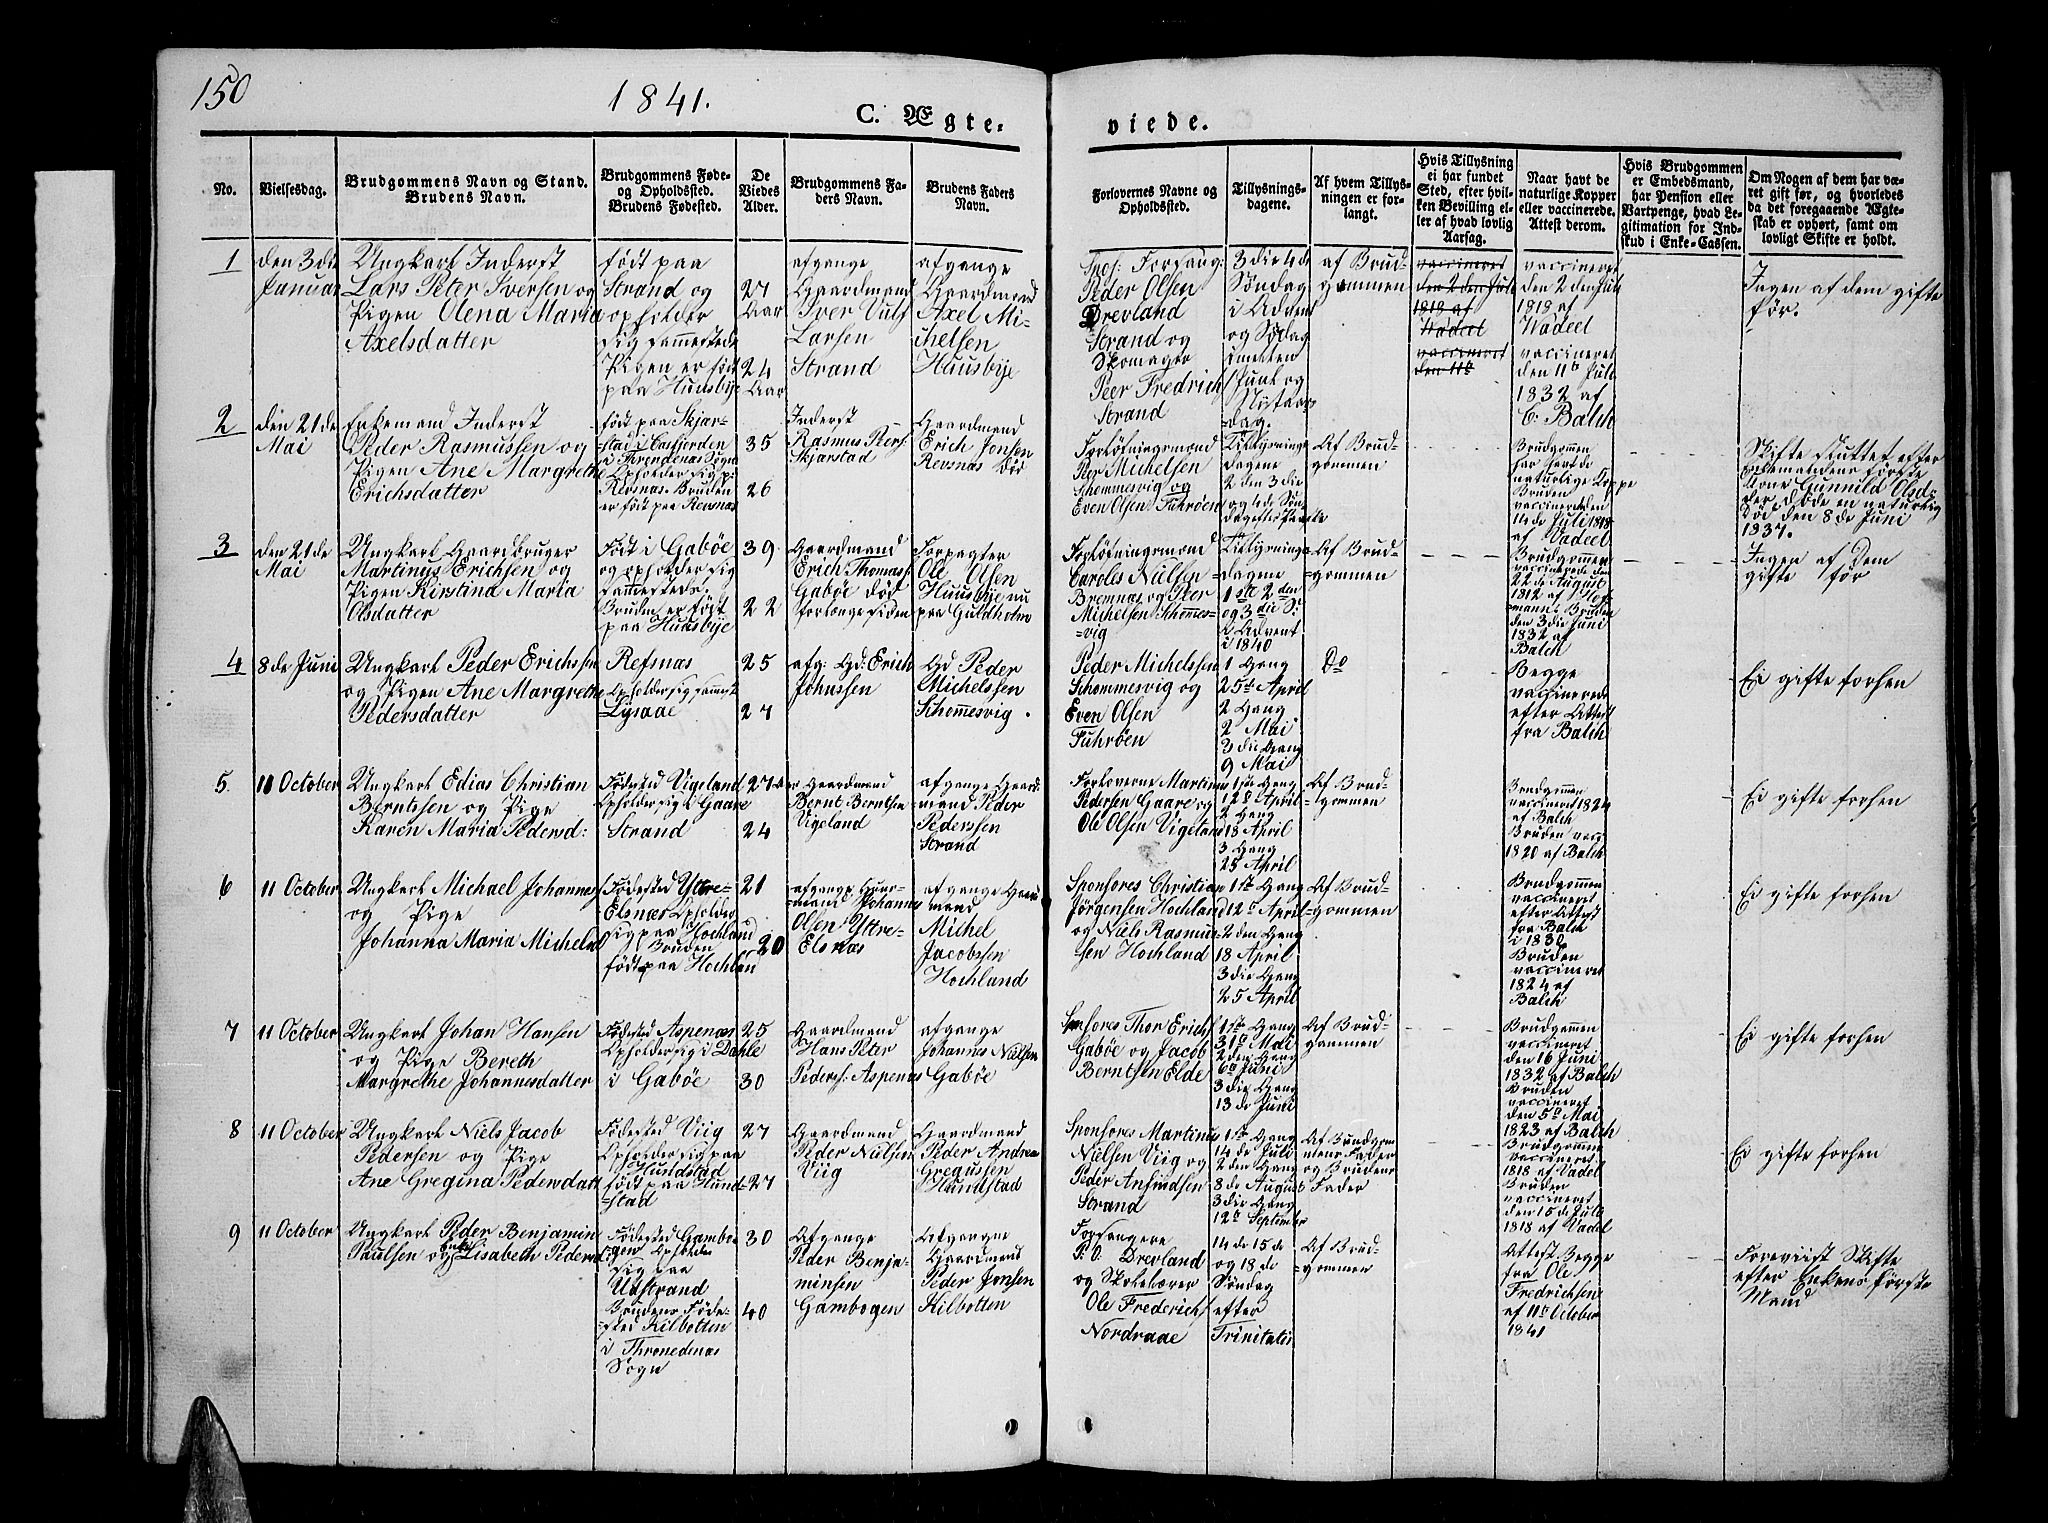 150
1841.
C. Ægte-
viede.
No.
Vielsesdag.
Brudgommens Navn og Stand.
Brudens Navn.
Brudgommens Føde-
og Opholdssted.
Brudens Fødested.
De
Viedes
Alder.
Brudgommens Fa-
ders Navn.
Brudens Faders
Navn.
Forlovernes Navne og
Opholdssted.
Tillysnings-
dagene.
Af hvem Tillys-
ningen er for-
langt.
Hvis Tillysning
ei har fundet
Sted, efter hvil-
ken Bevilling el-
ler af hvad lovlig
Aarsag.
Naar havt de
naturlige Kopper
eller vaccinerede.
Attest derom.
Hvis Brudgommen
er Embedsmand,
har Pension eller
Vartpenge, hvad Le-
gitimation for Ind-
skud i Enke-Cassen.
Om Nogen af dem har væ-
ret gift før, og hvorledes
da det foregaaende Ægte-
skab er ophørt, samt om
lovligt Skifte er holdt.
1
den 3die
Januar
Ungkarl Inderst
Lars Peter Iversen og
Pigen Olena Maria
Axelsdatter
født paa
Strand og
opholder
sig sammesteds
Pigen er født
paa Huusbye
27
Aar
24
Aar
afgangne
Gaardmand
Iver Vulf
Larsen
Strand
afgangne
Gaardmand
Axel Mi-
chelsen
Huusbye
Spos: Forsang:
Peder Olsen
Drevland
Strand og
Skomager
Peer Fredrich
Strand
3die 4de
Søndag
i Advent
og Sødag
imellem
Juul og
Nytaars
dag.
af Brud-
gommen
vaccineret
den 2den Juli
1818 af
Wadeel
vaccineret
den 11te
vaccineret
den 2den Juli
1818 af
Wadeel
vaccineret
den 11te Juli
1832 af
C: Balch
Ingen af dem gifte
før.
2
den 21de
Mai
Enkemand Inderst
Peder Rasmussen og
Pigen Ane Margrethe
Erichsdatter
født paa Skjar-
stad i Casfjorden
i Throndenas Sogn
Opholder sig p:
Refsnas. Bruden
er født paa Refsnas
35
26
Inderst
Rasmus Peers
Skjarstad
Gaardmand
Erich Jonsen
Revsnas død
Forløfningsmænd
Per Michelsen
Schommesvig og
Even Olsen Fuhrøen
Tillysnings
dagene
2den 3die
og 4de Søn-
dag efter Paaske
Af Brud-
gommen
Brudgommen
har havt de
naturlige Koppe
Bruden
vaccinerede den
14de Juli 1818
af Vadeel
Skifte sluttet efter
Enkemandens første
Kone Gunnild Olsd-
der døde en naturlig
Død den 8de Juni
1837.
3
den 21de
Mai
Ungkarl Gaardbruger
Martinus Erichsen og
Pigen Kirstina Maria
Olsdatter
Født i Gabøe
og opholder sig
sammesteds.
Bruden er født
paa Huusbye
39
22
Gaardmand
Erich Thomass:
Gabøe død
for længe siden
Forpagter
Ole Olsen
Huusbye nu
paa Guldholm
Forløfningsmænd
Caroles Nielsen
Bremnas og Peer
Michelsen Schommes-
vig
Tillysnings
dagene
1ste 2den
og 3die S:
i Advent
i 1840
Af Brud-
gommen
Brudgommen
vaccinerede den
22de August
1812 af Hof-
mann. Bruden
den 3die Juni
1832 af
Balch
Ingen af Dem
gifte før
4
8de Juni
Ungkarl Peder Erichssen
og Pigen Ane Margrethe
Pedersdatter
Refsnas
Opholder sig sammest
Lysaae
25
27
afg: Gd: Erich
Johnssen
Gd Peder
Michelssen
Schommesvig.
Peder Michelssen
Schommesvig og
Even Olsen
Fuhrøen
1 Gang
25de April
2 Gang
2 Mai
3die Gang
9 Mai
Do
Begge
vaccinerede
efter Attest
fra Balch
Ei gifte forhen
5.
11 October
Ungkarl Edias Christian
Berntssen og Pige
Karen Maria Pedersd:
Fødested Vigeland
Opholder sig i Gaare
Strand
27
24
Gaardmand
Bernt Berntsen
Vigeland
afgangne Gaard-
mand Peder
Pederssen
Strand
Forloverne Martinus
Pedersen Gaare og
Ole Olsen Vigeland
1ste Gang
12te April
2 Gang
18 April
3 Gang
25 April
Af Brud-
gommen
Brudgommen
vaccineret 1824
af Balch
Bruden vacc:
1820 af Balch
Ei gifte forhen
6
11 October
Ungkarl Michael Johannes
og Pige
Johanna Maria Michelsd
Fødested Yttre-
Elsnæs Opholder
sig paa Hochland
Bruden
født paa Hochland
21
20
afgangne Gaard-
mand Johannes
Olsen Yttre-
Elsnas
afgangne Gaard-
mand
Michel
Jacobssen
Hochland
Sponsores Christian
Jørgensen Hochland
og Niels Rasmus-
sen Hochland
1ste Gang
12te April
2den Gang
18 April
3die Gang
25 April
Af Brud-
gommen
Brudgommen
vaccineret
efter Attest
fra Balch
i 1830
Bruden
vaccineret
1824 af
Balch
Ei gifte forhen
7
11 October
Ungkarl Johan Hansen
og Pige Bereth
Margrethe Johannesdatter
Fødested Aspenæs
Opholder sig i Dahle
i Gabøe
25
30
Gaardmand
Hans Peter
Peders: Aspenas
afgangne
Johannes Nielsen
Gabøe
Sponsores Thor Erichs
Gabøe og Jacob
Berntsen Elde
1ste Gang
31te Mai
2den Gang
6te Juni
3die Gang
13de Juni
Af Brud-
gommen
Brudgommen
vaccineret
den 16 Juni
1832 af Balch
Bruden
vaccineret
den 5te Mai
1823 af Balch
Ei gifte forhen
8
11 October
Ungkarl Niels Jacob
Pedersen og Pige
Ane Gregina Pedersdatt
Fødested Viig
Opholder sig paa
Hundstad
født paa Hund-
stad
27
27
Gaardmand
Peder Nielsen
Viig
Gaardmand
Peder Andreas
Gregusen
Hundstad
Sponsores Martinus
Nielsen Viig og
Peder Anfindsen
Strand
1ste Gang
14de Juli
2den Gang
8de August
3die Gang
12te September
Af Brudgom
mens Fader
og Brudens
Fader
Brudgommen
vaccineret
1818 af Vadel
Bruden
vaccineret
den 15de Juli
1818 af Vadel
Ei gifte forhen
9
11 October
Ungkarl Peder Benjamin
Paulsen og Enke Lisabeth Pedersd
Fødested Gambo-
gen Opholder
sig paa
Udstrand
Brudens Føde-
sted Kilbotten
i Thronedenas
Sogn
30
40
Afgangne
Peder Benja-
minsen
Gambogen
Afgangne
Gaardmand
Peder Jonsen
Kilbotten
Forsangere
P. O. Drevland
og Skolelærer
Ole Frederichs
Nordraae
14de 15de
og 18de
Søndag
efter
Trinitatis
Af Brud-
gommen
Attest Begge
fra Ole
Fredrichsen
af 11te October
1841
Foreviist Skifte
efter Enkens første
Mand